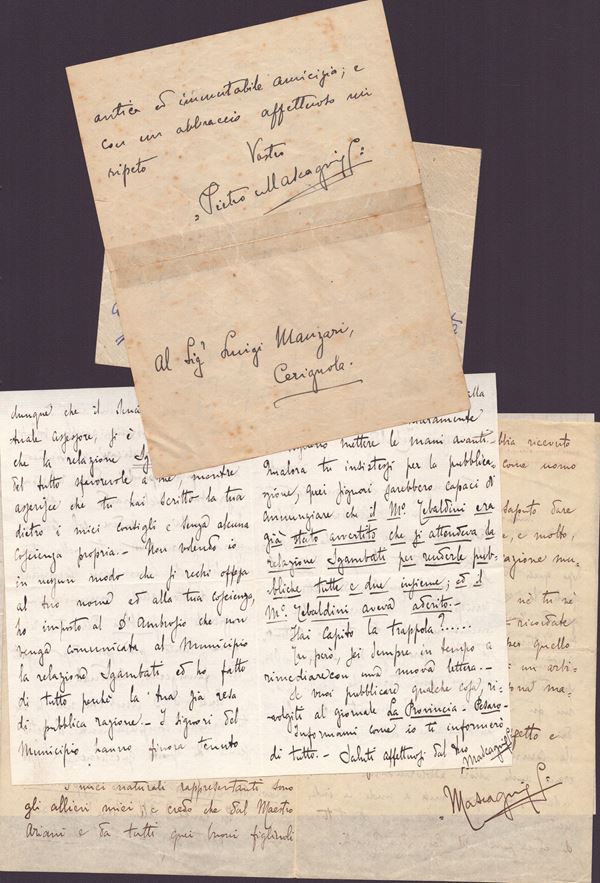 antica ed immutabile amicizia; e
con un abbraccio affettuoso mi
ripeto Vostro
Pietro Mascagni
Al Sigr Luigi Manzari,
Cerignola.
dunque che il
tuale assessore, si è
che la relazione
del tutto sfavorevole a me, mentre
asserisce che tu hai scritto la tua
dietro i miei consigli e senza alcuna
coscienza propria. – Non volendo io
in nessun modo che si rechi offesa
al tuo nome ed alla tua coscienza,
ho imposto al D'Ambrosio che non
venga comunicata al Municipio
la relazione Sgambati ed ho fatto
di tutto perchè la tua sia resa
di pubblica ragione. – I signori del
Municipio hanno finora tenuto
mettere le mani avanti.
Qualora tu insistessi per la pubblica-
zione, quei signori sarebbero capaci di
annunziare che il Mo. Tebaldini era
già stato avvertito che si attendeva la
relazione Sgambati per renderle pub-
bliche tutte e due insieme; ed il
Mo. Tebaldini aveva aderito. –
Hai capito la trappola?......
Tu, però, sei sempre in tempo a
rimediare con una nuova lettera. –
Se vuoi pubblicare qualche cosa, ri-
volgiti al giornale La Provincia - Pesaro –
Informami come io ti informerò
di tutto. – Saluti affettuosi dal tuo
Mascagni
bbia ricevuto
come uomo
saputo dare
e, e molto,
azione mu-
nè tu nè
ricordate
per quello
un arbi-
ma-
petto e
Mascagni
I miei naturali rappresentanti sono
gli allievi miei, e credo che dal Maestro
Ariani e da tutti quei buoni figliuoli